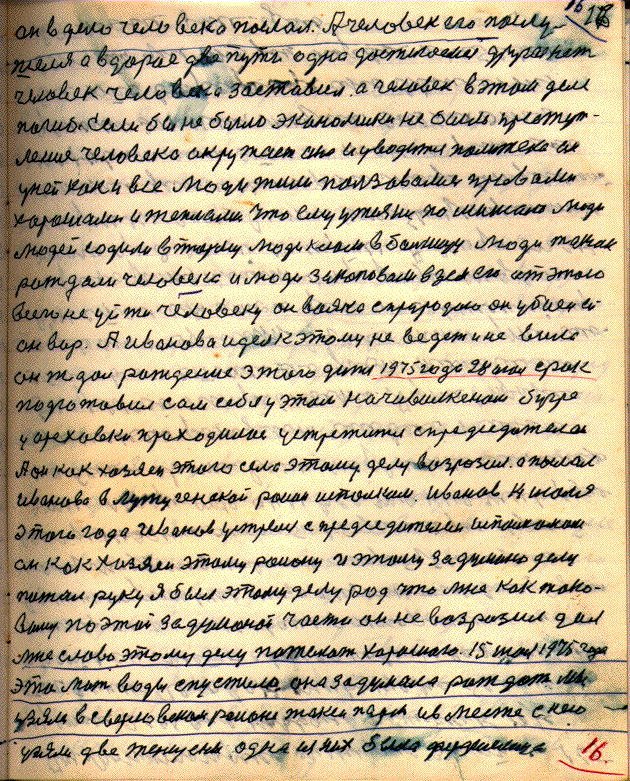 16 17
он в дело человека послал. А человек его послу-
шеля а вдорае две пути одна достигаема друга нет
человек человека заставил. а человек в этом деле
погиб. Если бы не было экономики не было преступ-
ления человека окружает она и уводит политека он
у ней как и все люди жили ползовалися правами
харошами и теплами. что ему у жизни по мешало люди
людей содили в тюрму люди клали в болницу люди такая
рождали человека и люди закоповали в землю от этого
всего не уйти человеку он воячо с природаю он убиец и
он вор. А Иванова идея к этому не ведет и не вила
он ждал рождение этого дитя 1975 года 28 мая срок
подготовил сам себя у этом на чивилкеном бугре
у ореховки приходилос устретится с председателем
А он как хозяен этого села этому делу возрозил. а послал
Иванова в лутугенской район исполком. Иванов 4 июля
этого года Иванов устреля с председателем исполкома
он как хозяен этому району и этому задумано делу
подал руку я был этому делу рад что мне как тако-
вому по этой задуманой части он не возрозил дал
мне слово этому делу пожелат харошаго. 15 мая 1975 года
это мат води спустило она задумала рождат мы
узяли в Сверловском районе такси парк и в месте с нею
узяли две женусны одна из них была фидиелица
16.